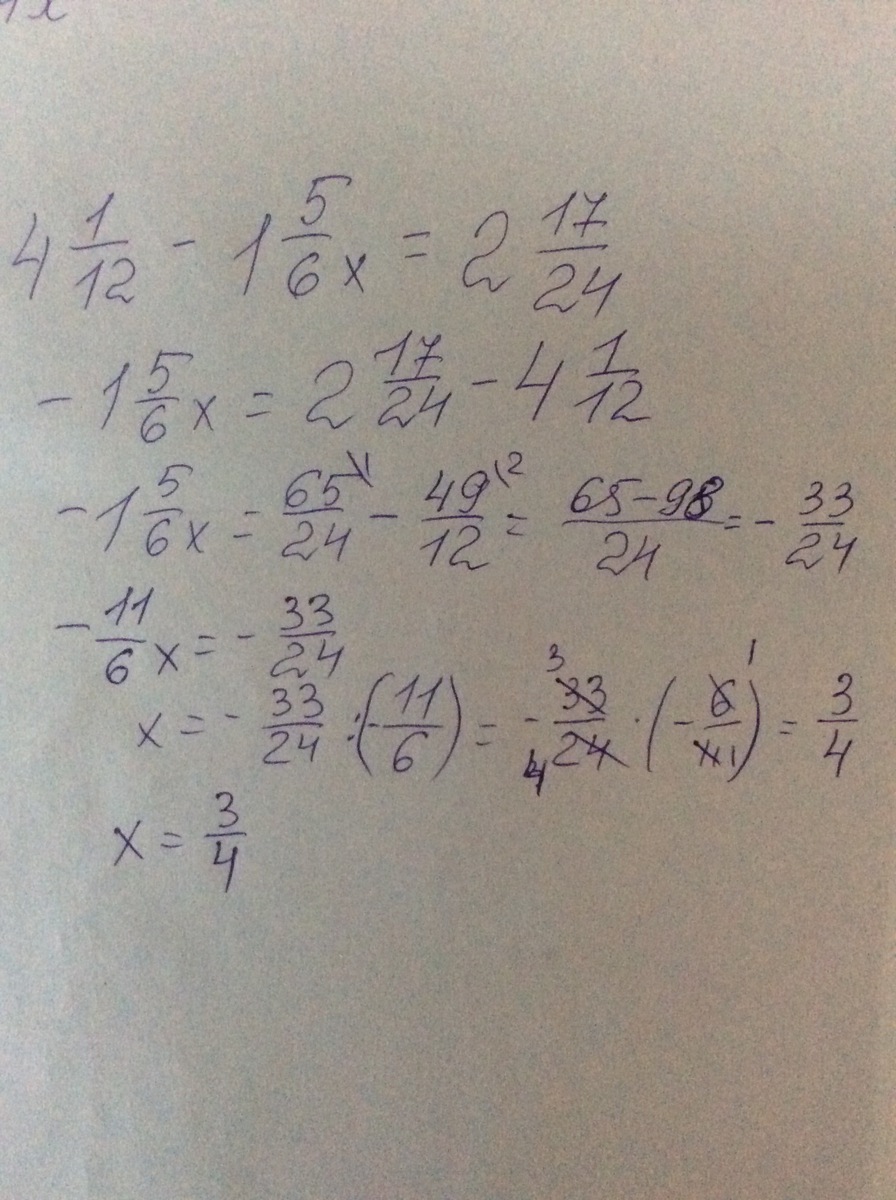 4 1/12 - 1 5/6 x = 2 17/24
- 1 5/6 x = 2 17/24 - 4 1/12
- 1 5/6 x = 65/24 \1 - 49/12 \2 = (65-98)/24 = - 33/24
- 11/6 x = - 33/24
x = - 33/24 : (- 11/6) = - 33/24 3 4 · (- 6/11) 1 1 = 3/4
x = 3/4